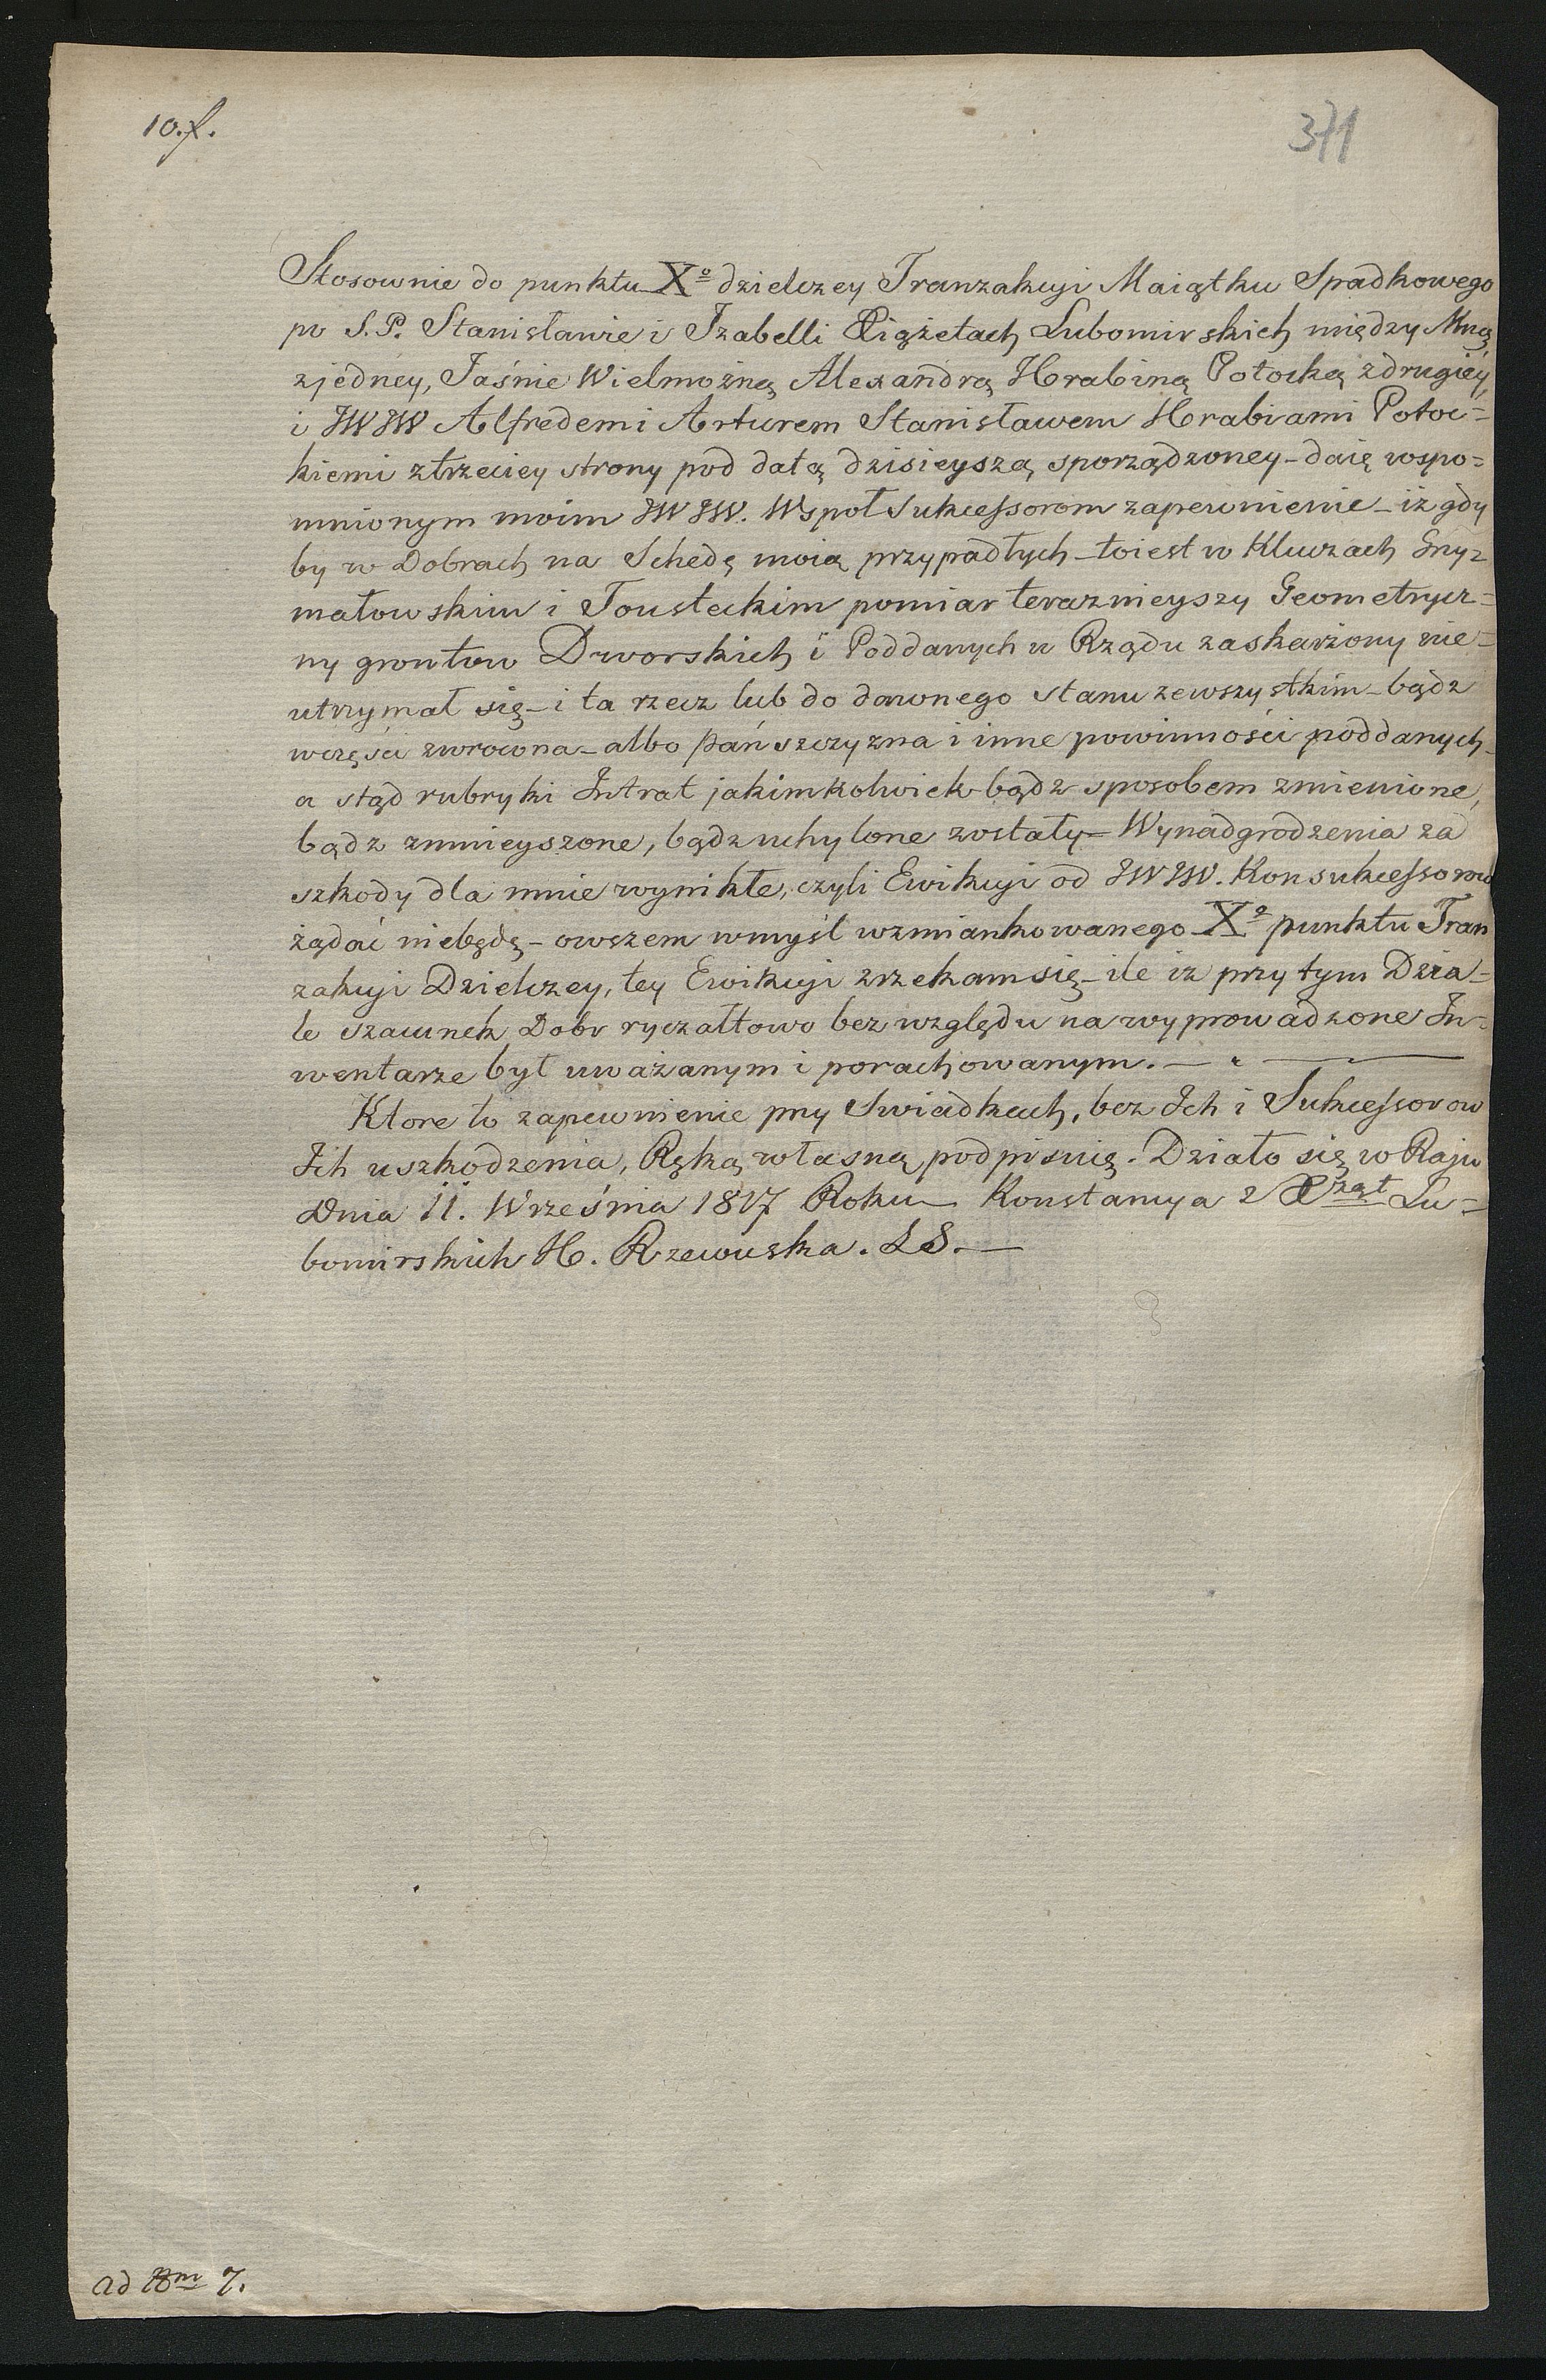 10.f.
371
Stosownie do punktu Xº dzielczey Tranzakcyi Maiątku Spadkowego
po S.P. Stanisławie i Izabelli Xiążetach Lubomirskich między Mną
zjedney, Jaśnie Wielmożną Alexandrą Hrabiną Potocką zdrugiéy,
i JWJW Alfredem i Arturem Stanisławem Hrabiami Potoc=
kiemi ztrzeciey strony pod datą dzisieyszą sporządzoney – daię wspo=
mnionym moim JWJW. Wspoł Sukcessorom zapewnienie – iż gdy
by w Dobrach na Schedę moią przypadłych – toiest w Kluczach Grzy=
małowskim i Tousteckim pomiar terazmieyszy Geometrycz=
ny grontow Dworskich i Poddanych u Rządu zaskarżony nie=
utrzymał się – i ta rzecz lub do dawnego stanu zewszystkim – bądz
wczęsci zwrocona – albo Pańszczyzna i inne powinności poddanych –
a stąd rubryki Intrat jakimkolwiek bądz sposobem zmienione,
bądz zmnieyszone, bądz uchylone zostały = Wynadgrodzenia za
szkody dla mnie wynikłe, czyli Ewikcyi od JWJW. Konsukcessorow
żądać niebędę – owszem wmyśl wzmiankowanego Xº punktu Tran
zakcyi Dzielczey, tey Ewikcyi zrzekam się – ile iz przy tym Dzia=
le szacunek Dobr ryczałtowo bez względu na wyprowadzone In=
wentarze był uważanym i porachowanym. —
Ktore to zapewnienie przy Swiadkach, bez Ich i Sukcessorow
Ich uszkodzenia, Ręką własną podpisuię. Działo się w Raju
Dnia 11. Wrzésnia 1817 Roku – Konstancya z Xżąt Lu=
bomirskich H. Rzewuska. LS. —
ad 7.